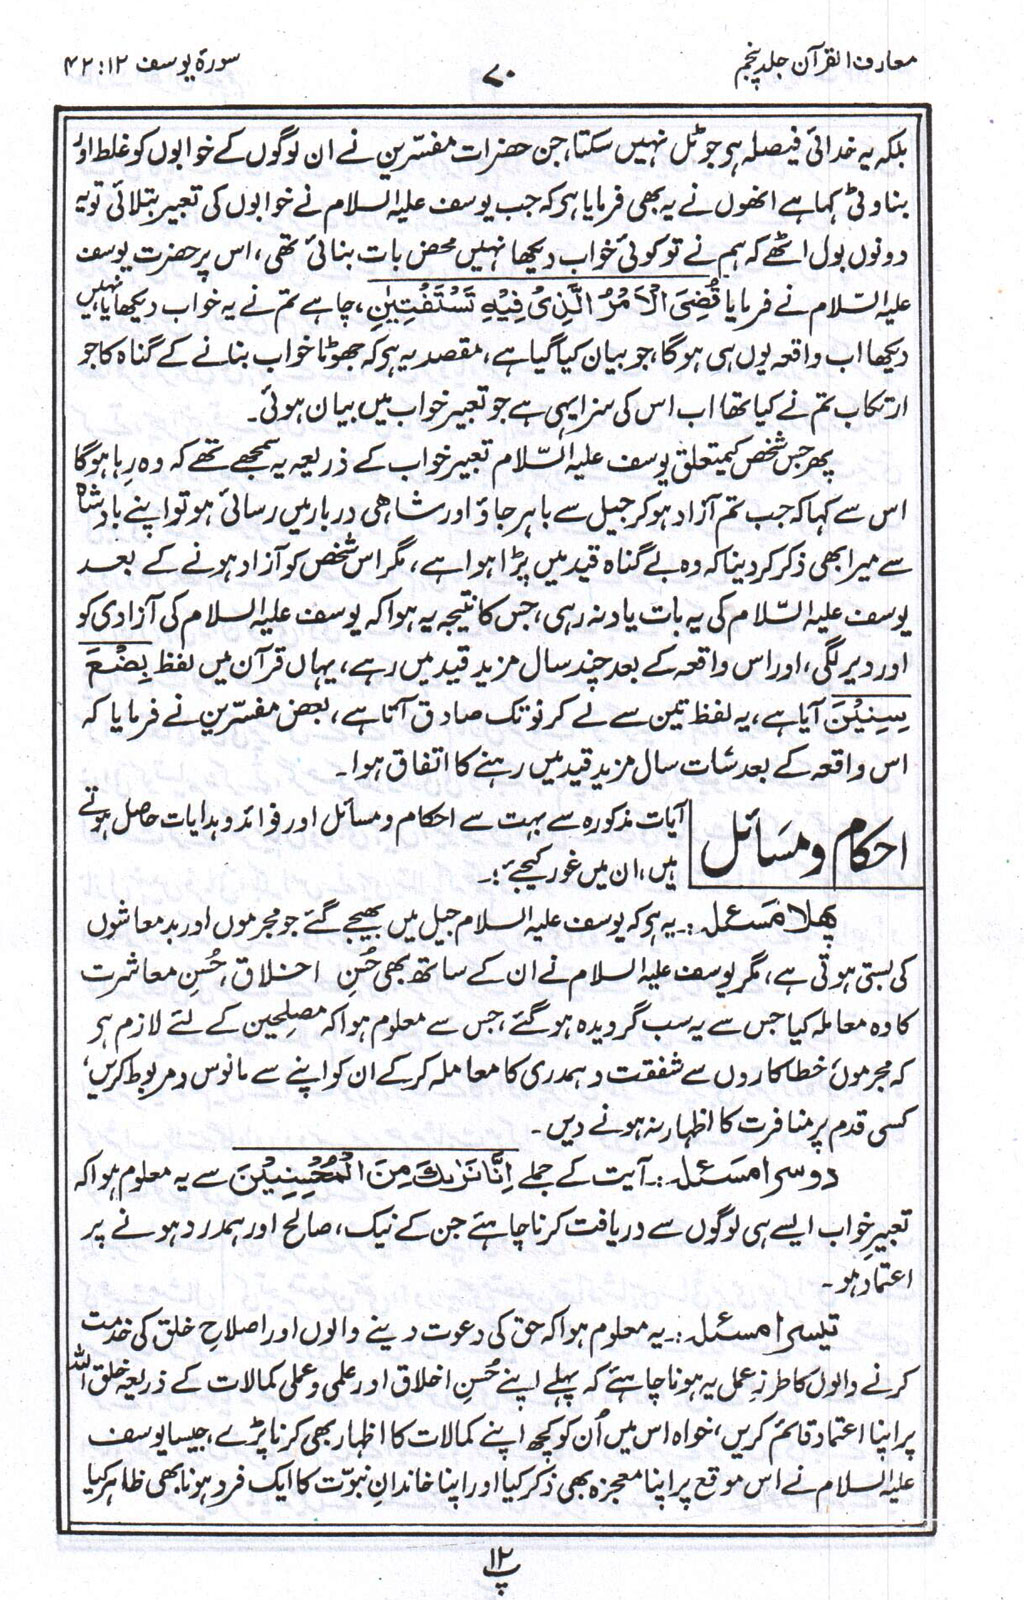 معارف القرآن جلد پنجم
۷۰
سورۃ یوسف ۱۲ : ۴۲
بلکہ یہ خدائی فیصلہ ہی جو ٹل نہیں سکتا، جن حضرات مفسّرین نے ان لوگوں کے خوابوں کو غلط اور
بناوٹی کہا ہے انھوں نے یہ بھی فرمایا ہی کہ جب یوسف علیہ السلام نے خوابوں کی تعبیر بتلائی تو یہ
دونوں بول اٹھے کہ ہم نے تو کوئی خواب دیکھا نہیں محض بات بنائی تھی، اس پر حضرت یوسف
علیہ السّلام نے فرمایا قُضِیَ الْاَمْرُ الَّذِیْ فِیْهِ تَسْتَفْتِیٰنِ، چاہے تم نے یہ خواب دیکھا یا نہیں
دیکھا اب واقعہ یوں ہی ہوگا، جو بیان کیا گیا ہے، مقصد یہ ہی کہ جھوٹا خواب بنانے کے گناہ کا جو
ارتکاب تم نے کیا تھا اب اس کی سزا یہی ہے جو تعبیر خواب میں بیان ہوئی۔
پھر جس شخص کیمتعلق یوسف علیہ السّلام تعبیر خواب کے ذریعہ یہ سمجھے تھے کہ وہ رہا ہوگا
اس سے کہا کہ جب تم آزاد ہو کر جیل سے باہر جاؤ اور شاھی دربار میں رسائی ہو تو اپنے بادشاہ
سے میرا بھی ذکر کر دینا کہ وہ بے گناہ قید میں پڑا ہوا ہے، مگر اس شخص کو آزاد ہونے کے بعد
یوسف علیہ السّلام کی یہ بات یاد نہ رہی، جس کا نتیجہ یہ ہوا کہ یوسف علیہ السلام کی آزادی کو
اور دیر لگی، اور اس واقعہ کے بعد چند سال مزید قید میں رہے، یہاں قرآن میں لفظ بِضْعَ
سِنِیْنَ آیا ہے، یہ لفظ تین سے لے کر نو تک صادق آتا ہے، بعض مفسّرین نے فرمایا کہ
اس واقعہ کے بعد سات سال مزید قید میں رہنے کا اتفاق ہوا۔
احکام و مسَائل
آیات مذکورہ سے بہت سے احکام و مسائل اور فوائد و ہدایات حاصل ہوتے
ہیں، ان میں غور کیجئے :۔
پھلا مَسئلہ :۔ یہ ہی کہ یوسف علیہ السلام جیل میں بھیجے گئے جو مجرموں اور بدمعاشوں
کی بستی ہوتی ہے، مگر یوسف علیہ السلام نے ان کے ساتھ بھی حُسنِ اخلاق، حُسنِ معاشرت
کا وہ معاملہ کیا جس سے یہ سب گرویدہ ہوگئے، جس سے معلوم ہوا کہ مصلحین کے لئے لازم ہی
کہ مجرموں خطاکاروں سے شفقت و ہمدردی کا معاملہ کرکے ان کو اپنے سے مانوس و مربوط کریں،
کسی قدم پر منافرت کا اظہار نہ ہونے دیں۔
دوسرا مسَئلہ :۔ آیت کے جملے اِنَّا نَرٰىكَ مِنَ الْمُحْسِنِیْنَ سے یہ معلوم ہوا کہ
تعبیرِ خواب ایسے ہی لوگوں سے دریافت کرنا چاہئے جن کے نیک، صالح اور ہمدرد ہونے پر
اعتماد ہو۔
تیسرا مسئلہ :۔ یہ معلوم ہوا کہ حق کی دعوت دینے والوں اور اصلاحِ خلق کی خدمت
کرنے والوں کا طرزِ عمل یہ ہونا چاہئے کہ پہلے اپنے حُسنِ اخلاق اور علمی و عملی کمالات کے ذریعہ خلق اللہ
پر اپنا اعتماد قائم کریں، خواہ اس میں اُن کو کچھ اپنے کمالات کا اظہار بھی کرنا پڑے، جیسا یوسف
علیہ السلام نے اس موقع پر اپنا معجزہ بھی ذکر کیا اور اپنا خاندانِ نبوّت کا ایک فرد ہونا بھی ظاہر کیا
پ ۱۲